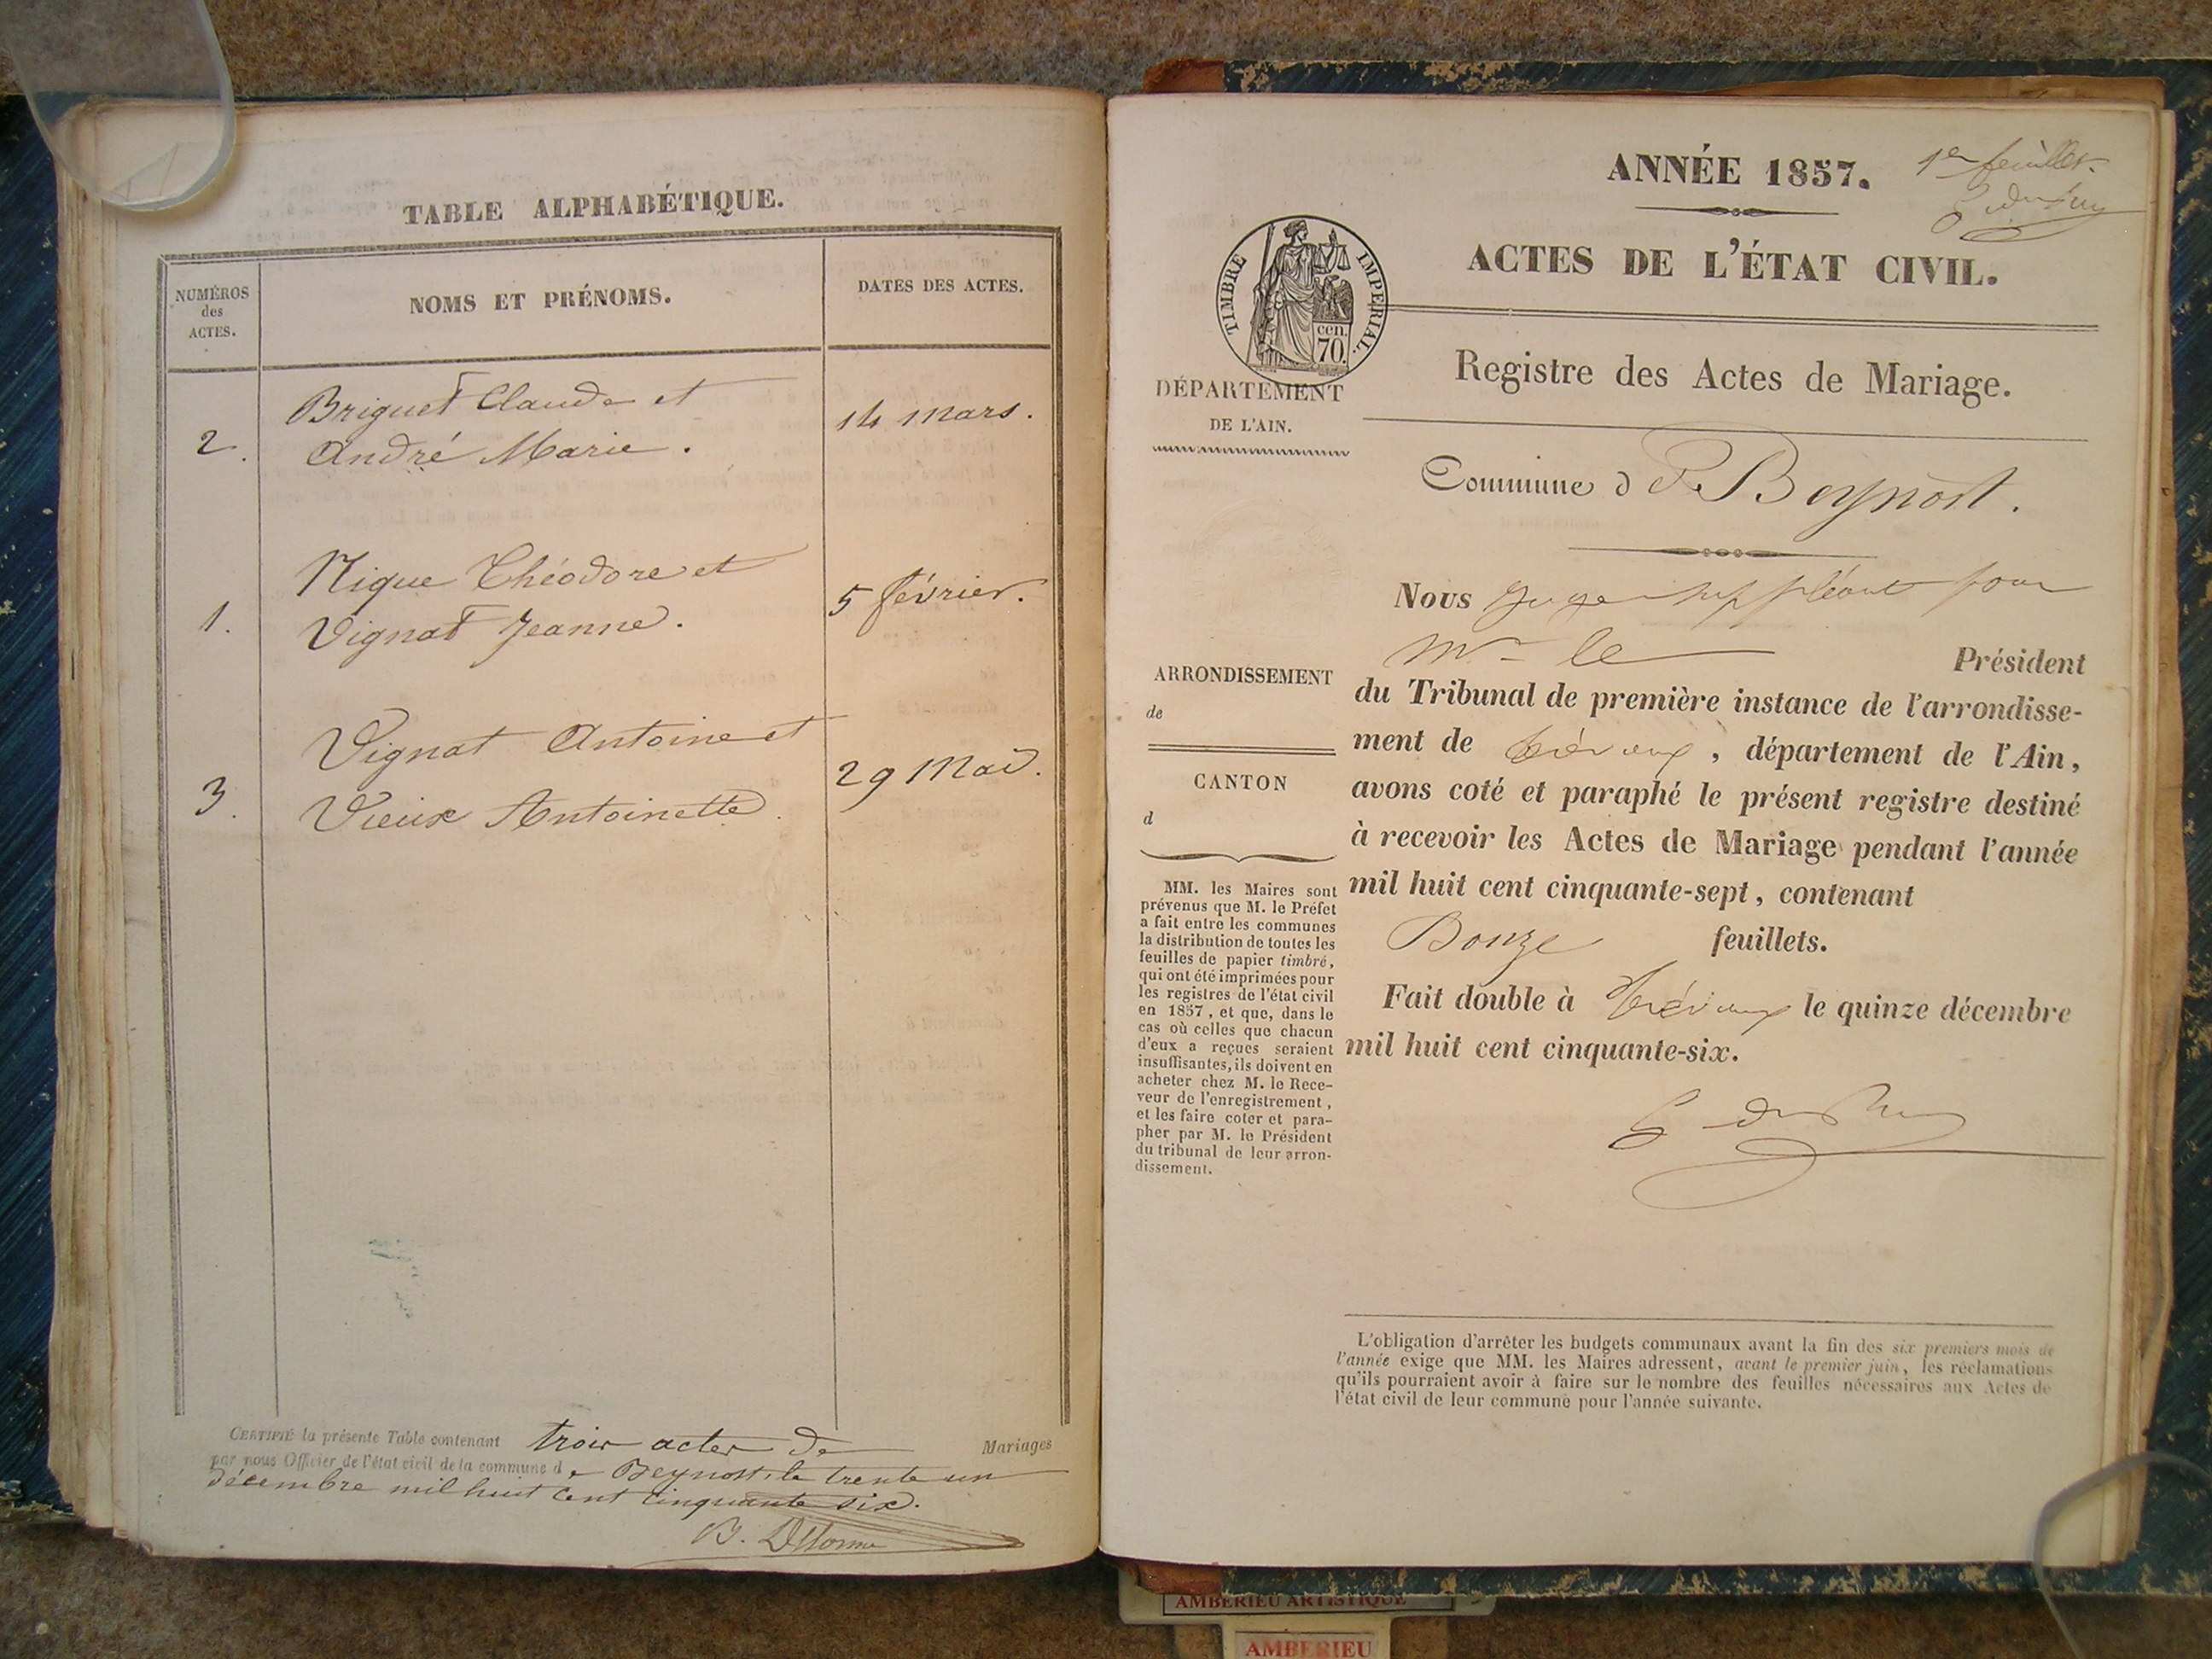 TABLE ALPHABÉTIQUE.
NUMÉROS
des
ACTES.
NOMS ET PRÉNOMS.
DATES DES ACTES.
Briguet Claude et
2.
André Marie.
14 mars.
Nique Théodore et
1.
Vignat Jeanne.
5 février.
Vignat Antoine et
3.
Vieux Antoinette.
29 Mai.
CERTIFIÉ la présente Table contenant trois actes de Mariages
par nous Officier de l'état civil de la commune de Beynost, le trente un
décembre mil huit cent cinquante six.
B. Delorme
1er feuillet.
ANNÉE 1857.
ACTES DE L'ÉTAT CIVIL.
TIMBRE IMPERIAL.
cen.
70.
DÉPARTEMENT
DE L'AIN.
Registre des Actes de Mariage.
Commune de Beynost.
Nous Juge suppléant pour
Mr le Président
du Tribunal de première instance de l'arrondisse-
ment de Trévoux, département de l'Ain,
avons coté et paraphé le présent registre destiné
à recevoir les Actes de Mariage pendant l'année
mil huit cent cinquante-sept, contenant
Bonze feuillets.
Fait double à Trévoux le quinze décembre
mil huit cent cinquante-six.
ARRONDISSEMENT
de
CANTON
d
MM. les Maires sont
prévenus que M. le Préfet
a fait entre les communes
la distribution de toutes les
feuilles de papier timbré,
qui ont été imprimées pour
les registres de l'état civil
en 1857, et que, dans le
cas où celles que chacun
d'eux a reçues seraient
insuffisantes, ils doivent en
acheter chez M. le Rece-
veur de l'enregistrement,
et les faire coter et para-
pher par M. le Président
du tribunal de leur arron-
dissement.
L'obligation d'arrêter les budgets communaux avant la fin des six premiers mois de
l'année exige que MM. les Maires adressent, avant le premier juin, les réclamations
qu'ils pourraient avoir à faire sur le nombre des feuilles nécessaires aux Actes de
l'état civil de leur commune pour l'année suivante.
AMBERIEU ARTISTIQUE
AMBERIEU